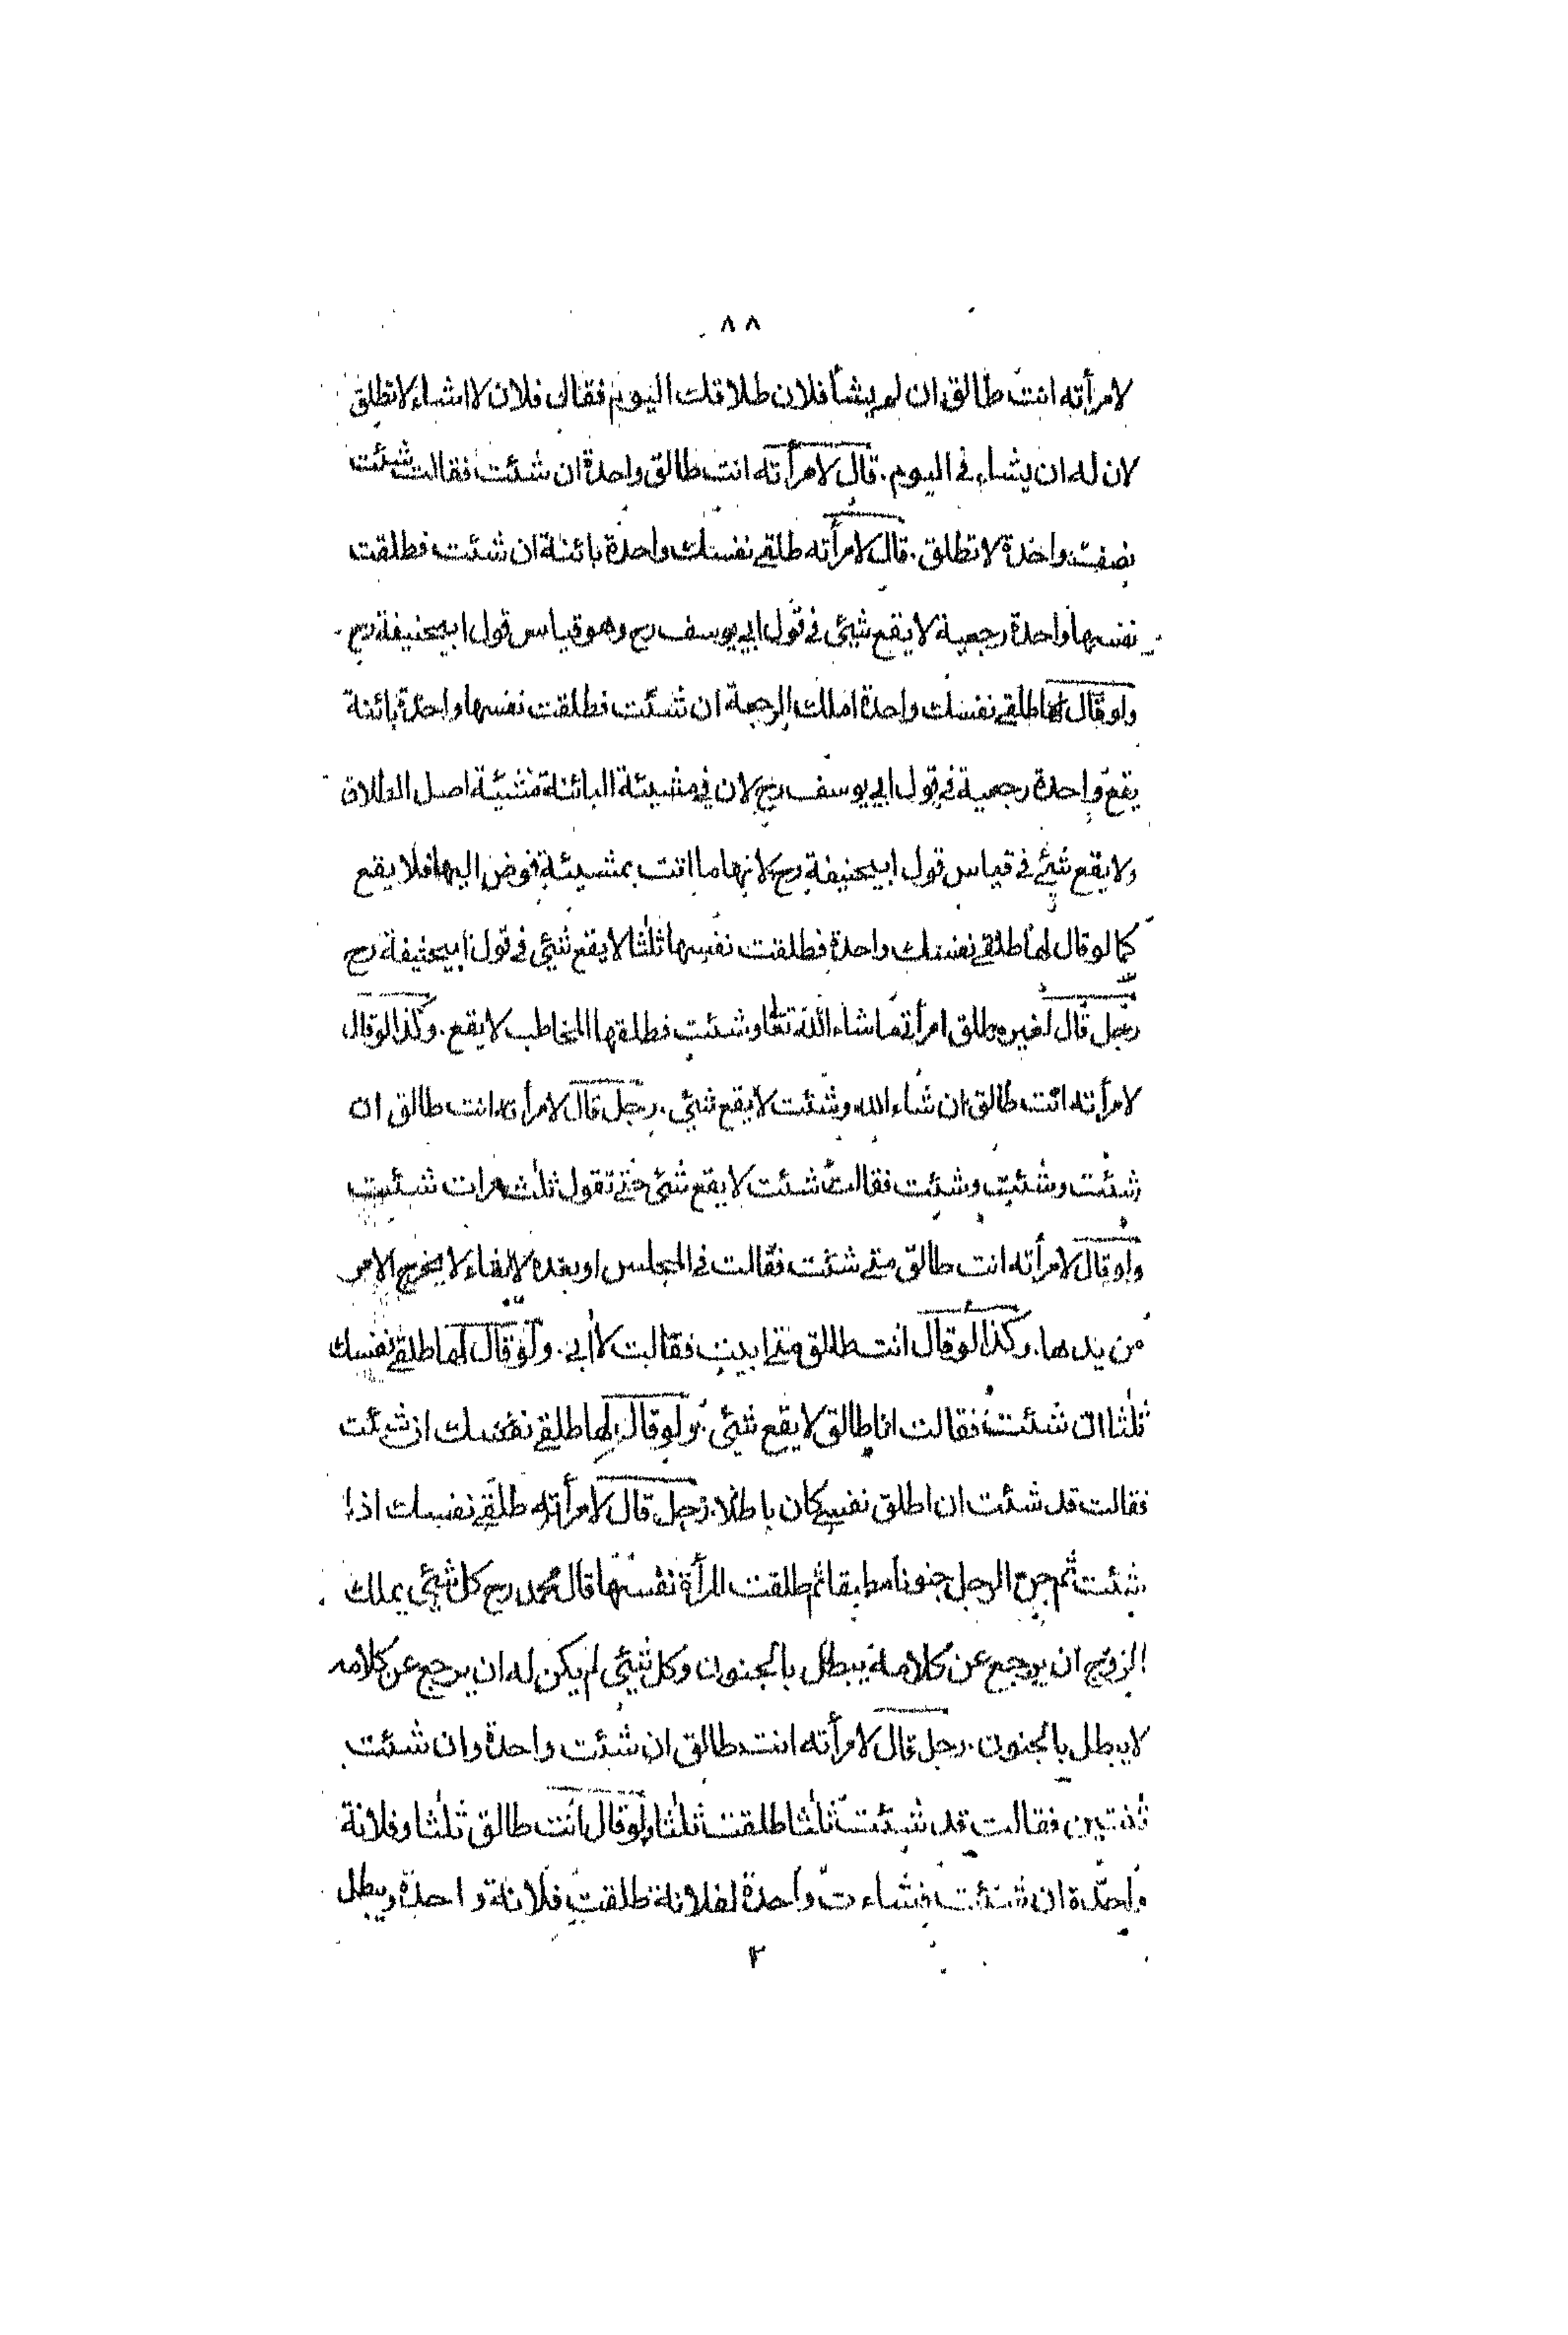 ٨٨
لامرأته انت طالق ان لم يشأ فلان طلاقك اليوم فقال فلان لا اشاء لا تطلق
لان له ان يشاء في اليوم . قال لامرأته انت طالق واحدة ان شئت فقالت شئت
نصف واحدة لا تطلق . قال لامرأته طلقي نفسك واحدة بائنة ان شئت فطلقت
نفسها واحدة رجعية لا يقع شيئ في قول ابي يوسف رح وهو قياس قول ابيحنيفة رح
ولو قال لها طلقي نفسك واحدة املك الرجعة ان شئت فطلقت نفسها واحدة بائنة
يقع واحدة رجعية في قول ابي يوسف رح لان في مشيئة البائنة مشيئة اصل الطلاق
ولا يقع شيئ في قياس قول ابيحنيفة رح لانها ما اتت بمشيئة فوض اليها فلا يقع
كما لو قال لها طلقي نفسك واحدة فطلقت نفسها ثلثا لا يقع شيئ في قول ابيحنيفة رح
رجل قال لغيره طلق امرأتي ما شاء الله تعا وشئت فطلقها المخاطب لا يقع . وكذا لو قال
لامرأته انت طالق ان شاء الله وشئت لا يقع شيئ . رجل قال لامرأته انت طالق ان
شئت وشئت وشئت فقالت شئت لا يقع شئ حتى تقول ثلث مرات شئت
ولو قال لامرأته انت طالق متى شئت فقالت في المجلس او بعده لا اشاء لا يخرج الامر
من يدها . وكذا لو قال انت طالق متى ابيت فقالت لا أبى . ولو قال لها طلقي نفسك
ثلثا ان شئت فقالت انا طالق لا يقع شيئ . ولو قال لها طلقي نفسك ان شئت
فقالت قد شئت ان اطلق نفسي كان باطلا . رجل قال لامرأته طلقي نفسك اذا
شئت ثم جن الرجل جنونا مطبقا ثم طلقت المرأة نفسها قال محمد رح كل شيئ يملك
الزوج ان يرجع عن كلامه يبطل بالجنون وكل شيئ لم يكن له ان يرجع عن كلامه
لا يبطل بالجنون . رجل قال لامرأته انت طالق ان شئت واحدة وان شئت
ثنتين فقالت قد شئت ثلثا طلقت ثلثا ولو قال انت طالق ثلثا وفلانة
واحدة ان شئت فشاءت واحدة لفلانة طلقت فلانة واحدة ويبطل
٢